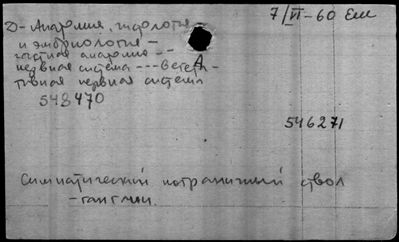 7/VI-60 Еш
D- Анатомия, гистология
и эмбриология -
частная анатомия --
нервная система --- Вегета-
тивная нервная система
548470
546271
Симпатический пограничный ствол
- ганглии.